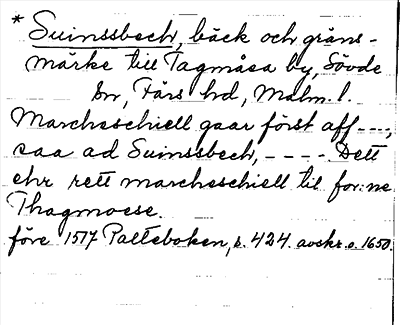 * Suinssbech, bäck och gräns-
märke till Tagmåsa by, Sövde
sn, Färs hd, Malm. l.
Marchaschiell gaar först aff ---,
saa ad Suinssbech, ---- Dett
ehr rett marchaschiell til for:ne
Thagmoese.
före 1517 Palteboken, s. 424. avskr. o. 1650.